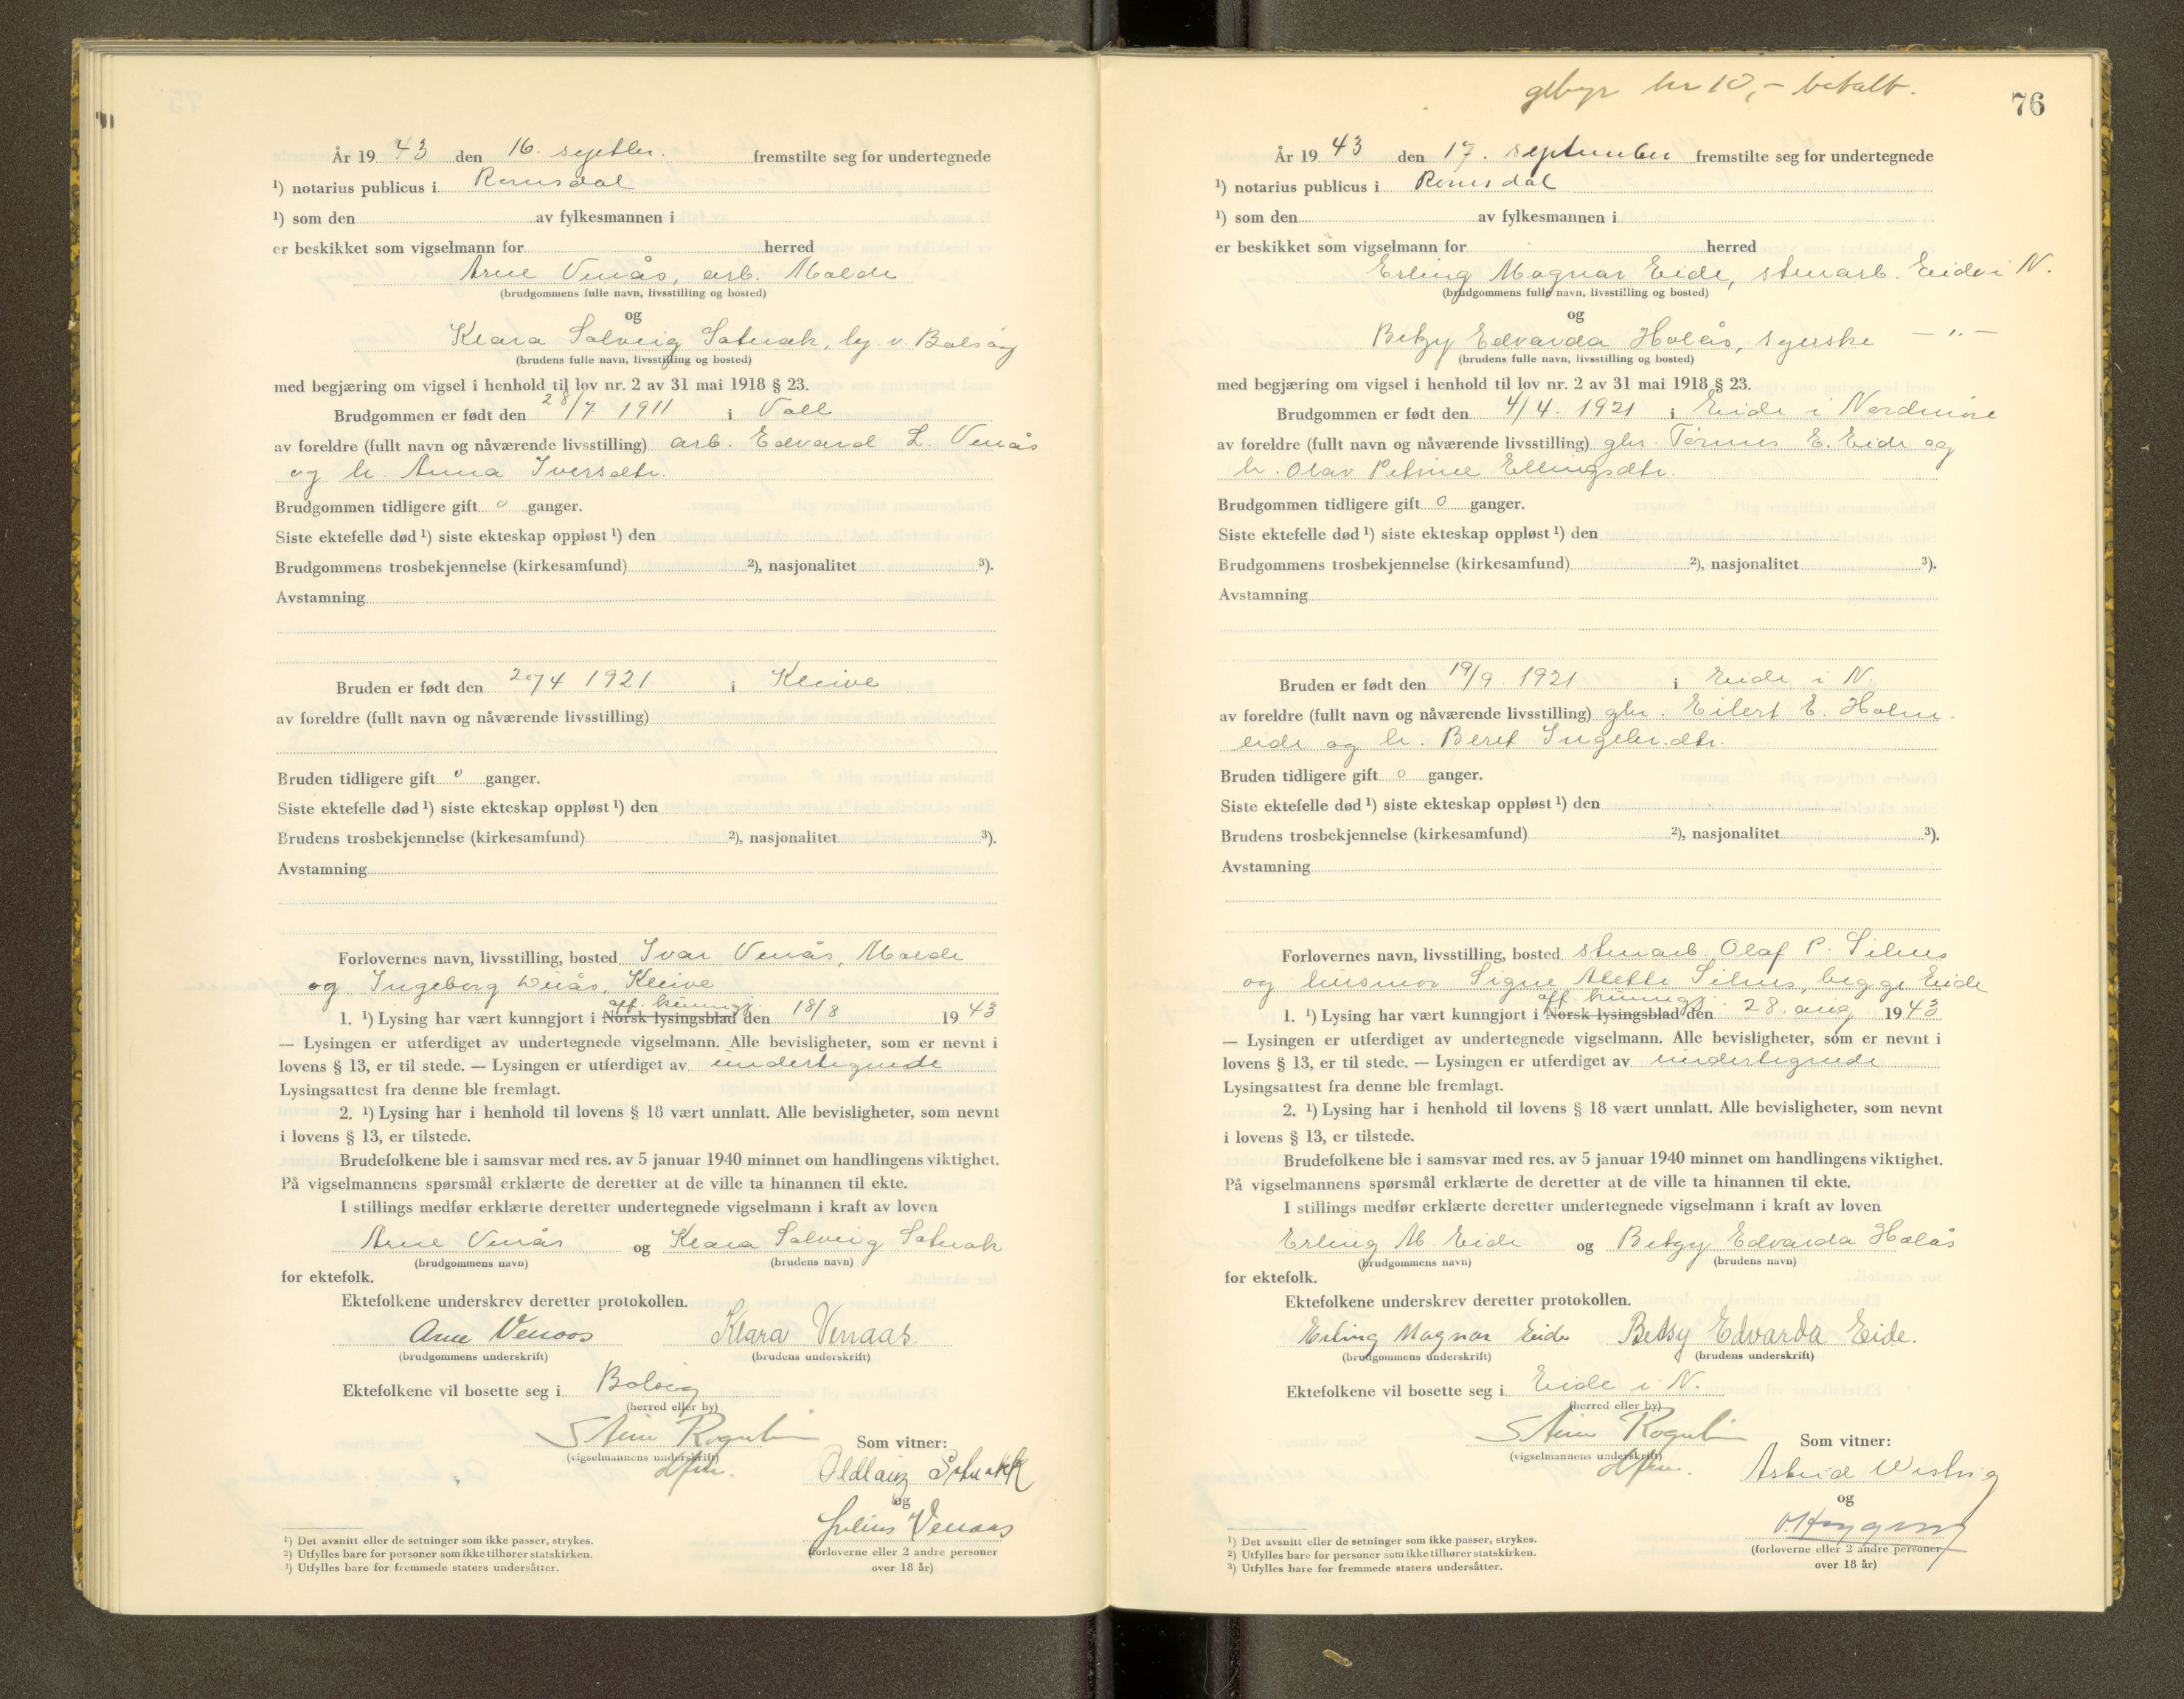 År 19 43 den 16. septbr. fremstilte seg for undertegnede
¹) notarius publicus i Romsdal
¹) som den av fylkesmannen i
er beskikket som vigselmann for herred
Arne Venås, arb. Molde
(brudgommens fulle navn, livsstilling og bosted)
og
Klara Solveig Sotnak, Bolsøy
(brudens fulle navn, livsstilling og bosted)
med begjæring om vigsel i henhold til lov nr. 2 av 31 mai 1918 § 23.
Brudgommen er født den 28/7 1911 i Voll
av foreldre (fullt navn og nåværende livsstilling) arb. Edvard L. Venås
og h. Anna Iversdtr.
Brudgommen tidligere gift 0 ganger.
Siste ektefelle død ¹) siste ekteskap oppløst ¹) den
Brudgommens trosbekjennelse (kirkesamfund) ²), nasjonalitet ³).
Avstamning
Bruden er født den 20/4 1921 i Kleive
av foreldre (fullt navn og nåværende livsstilling)
Bruden tidligere gift 0 ganger.
Siste ektefelle død ¹) siste ekteskap oppløst ¹) den
Brudens trosbekjennelse (kirkesamfund) ²), nasjonalitet ³).
Avstamning
Forlovernes navn, livsstilling, bosted Ivar Venås, Molde
og Ingeborg Venås, Kleive
off. kunngj.
1. ¹) Lysing har vært kunngjort i Norsk lysingsblad den 18/8 19 43
— Lysingen er utferdiget av undertegnede vigselmann. Alle bevisligheter, som er nevnt i
lovens § 13, er til stede. — Lysingen er utferdiget av undertegnede
Lysingsattest fra denne ble fremlagt.
2. ¹) Lysing har i henhold til lovens § 18 vært unnlatt. Alle bevisligheter, som nevnt
i lovens § 13, er tilstede.
Brudefolkene ble i samsvar med res. av 5 januar 1940 minnet om handlingens viktighet.
På vigselmannens spørsmål erklærte de deretter at de ville ta hinannen til ekte.
I stillings medfør erklærte deretter undertegnede vigselmann i kraft av loven
Arne Venås og Klara Solveig Sotnak
(brudgommens navn) (brudens navn)
for ektefolk.
Ektefolkene underskrev deretter protokollen.
Arne Venaas Klara Venaas
(brudgommens underskrift) (brudens underskrift)
Ektefolkene vil bosette seg i Bolsøy
(herred eller by)
Som vitner:
(vigselmannens underskrift)
og
Julius Venaas
(forloverne eller 2 andre personer
over 18 år)
¹) Det avsnitt eller de setninger som ikke passer, strykes.
²) Utfylles bare for personer som ikke tilhører statskirken.
³) Utfylles bare for fremmede staters undersåtter.
gebyr kr 10,- betalt.
76
År 19 43 den 17. september fremstilte seg for undertegnede
¹) notarius publicus i Romsdal
¹) som den av fylkesmannen i
er beskikket som vigselmann for herred
Erling Magnar Eide, stenarb. Eide i N.
(brudgommens fulle navn, livsstilling og bosted)
og
Betzy Edvarda Holås, syerske — " —
(brudens fulle navn, livsstilling og bosted)
med begjæring om vigsel i henhold til lov nr. 2 av 31 mai 1918 § 23.
Brudgommen er født den 4/4. 1921 i Eide i Nordmøre
av foreldre (fullt navn og nåværende livsstilling) gbr. Tørres E. Eide og
h. Olav Petrine Ellingsdtr.
Brudgommen tidligere gift 0 ganger.
Siste ektefelle død ¹) siste ekteskap oppløst ¹) den
Brudgommens trosbekjennelse (kirkesamfund) ²), nasjonalitet ³).
Avstamning
Bruden er født den 19/9. 1921 i Eide i N.
av foreldre (fullt navn og nåværende livsstilling) gbr. Eilert E. Holm-
eide og h. Beret Ingebr.dtr.
Bruden tidligere gift 0 ganger.
Siste ektefelle død ¹) siste ekteskap oppløst ¹) den
Brudens trosbekjennelse (kirkesamfund) ²), nasjonalitet ³).
Avstamning
Forlovernes navn, livsstilling, bosted stenarb. Olaf P. Silnes
og husmor Signe Alette Silnes, begge Eide
off. kunngj.
1. ¹) Lysing har vært kunngjort i Norsk lysingsblad den 28. aug. 19 43
— Lysingen er utferdiget av undertegnede vigselmann. Alle bevisligheter, som er nevnt i
lovens § 13, er til stede. — Lysingen er utferdiget av undertegnede
Lysingsattest fra denne ble fremlagt.
2. ¹) Lysing har i henhold til lovens § 18 vært unnlatt. Alle bevisligheter, som nevnt
i lovens § 13, er tilstede.
Brudefolkene ble i samsvar med res. av 5 januar 1940 minnet om handlingens viktighet.
På vigselmannens spørsmål erklærte de deretter at de ville ta hinannen til ekte.
I stillings medfør erklærte deretter undertegnede vigselmann i kraft av loven
Erling M. Eide og Betzy Edvarda Holås
(brudgommens navn) (brudens navn)
for ektefolk.
Ektefolkene underskrev deretter protokollen.
Erling Magnar Eide Betsy Edvarda Eide.
(brudgommens underskrift) (brudens underskrift)
Ektefolkene vil bosette seg i Eide i N.
(herred eller by)
Som vitner:
(vigselmannens underskrift)
Astrid
og
(forloverne eller 2 andre personer
over 18 år)
¹) Det avsnitt eller de setninger som ikke passer, strykes.
²) Utfylles bare for personer som ikke tilhører statskirken.
³) Utfylles bare for fremmede staters undersåtter.